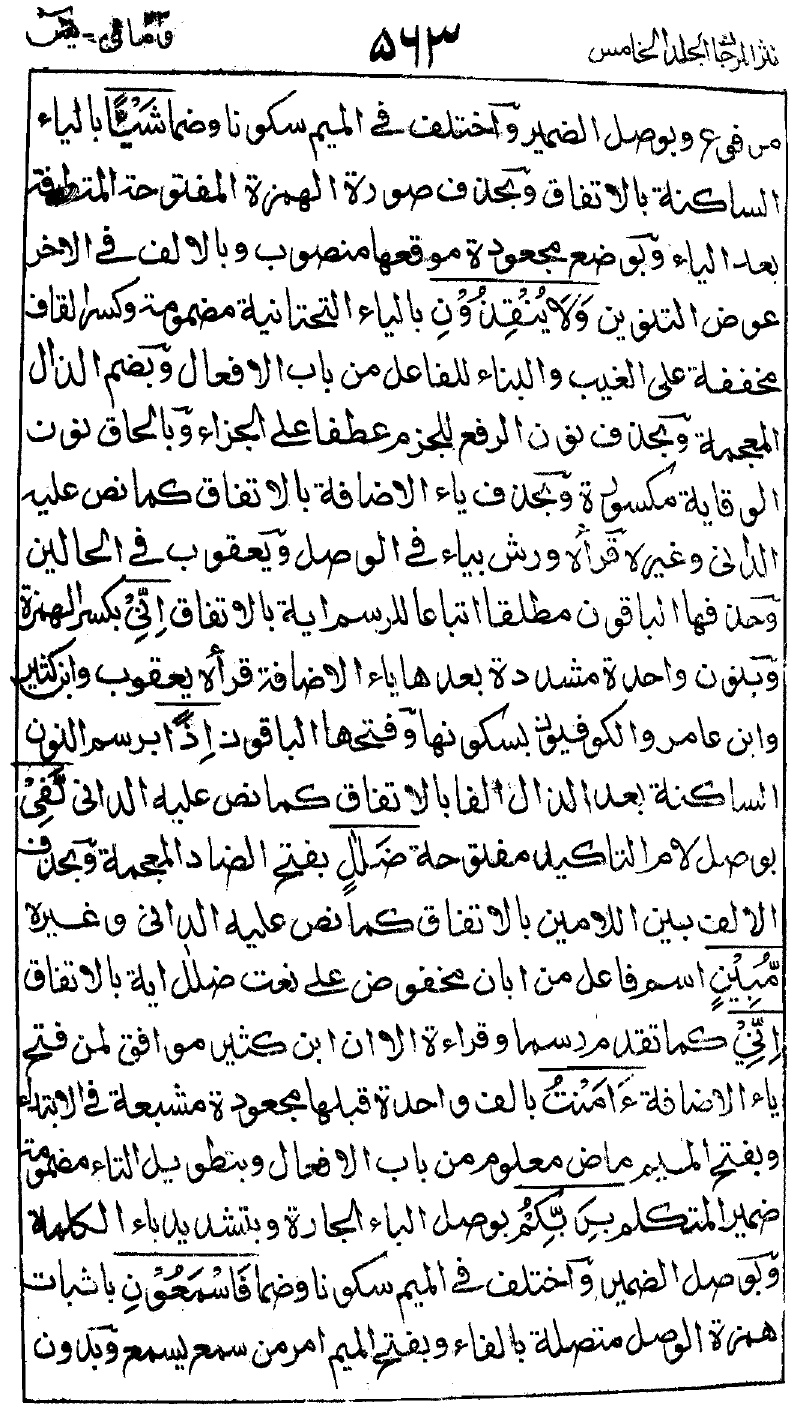 نثر المرجان الجلد الخامس
۵۶۳
ومالی۔ یٰسٓ
مرفوع وبوصل الضمير وآختلف فی الميم سكونا وضما شَيْـًٔا بالياء
الساكنة بالاتفاق وبحذف صورة الهمزة المفتوحة المتطرفة
بعد الياء وبوضع مجعودة موقعها منصوب وبالالف فی الاخر
عوض التنوين وَلَا يُنْقِذُوْنِ بالياء التحتانية مضمومة وكسر القاف
مخففة علی الغيب والبناء للفاعل من باب الافعال وبضم الذال
المعجمة وبحذف نون الرفع للجزم عطفا علی الجزاء وبالحاق نون
الوقاية مكسورة وبحذف ياء الاضافة بالاتفاق كما نص عليه
الدانی وغيره قرأه ورش بياء فی الوصل ويعقوب فی الحالين
وحذفها الباقون مطلقا اتباعا للرسم اية بالاتفاق اِنِّیْ بكسر الهمزة
وبنون واحدة مشددة بعدها ياء الاضافة قرأه يعقوب وابن كثير
وابن عامر والكوفيون بسكونها وفتحها الباقون اِذًا برسم النون
الساكنة بعد الذال الفا بالاتفاق كما نص عليه الدانی لَّفِیْ
بوصل لام التاكيد مفتوحة ضَلٰلٍ بفتح الضاد المعجمة وبحذف
الالف بين اللامين بالاتفاق كما نص عليه الدانی وغيره
مُّبِيْنٍ اسم فاعل من ابان مخفوض علی نعت ضلٰل اية بالاتفاق
اِنِّیْ كما تقدم رسما وقراءة الا ان ابن كثير موافق لمن فتح
ياء الاضافة ءَامَنْتُ بالف واحدة قبلها مجعودة مشبعة فی الابتداء
وبفتح الميم ماض معلوم من باب الافعال وبتطويل التاء مضمومة
ضمير المتكلم بِرَبِّكُمْ بوصل الباء الجارة وبتشديد باء الكلمة
وبوصل الضمير وآختلف فی الميم سكونا وضما فَاسْمَعُوْنِ باثبات
همزة الوصل متصلة بالفاء وبفتح الميم امر من سمع يسمع وبدون